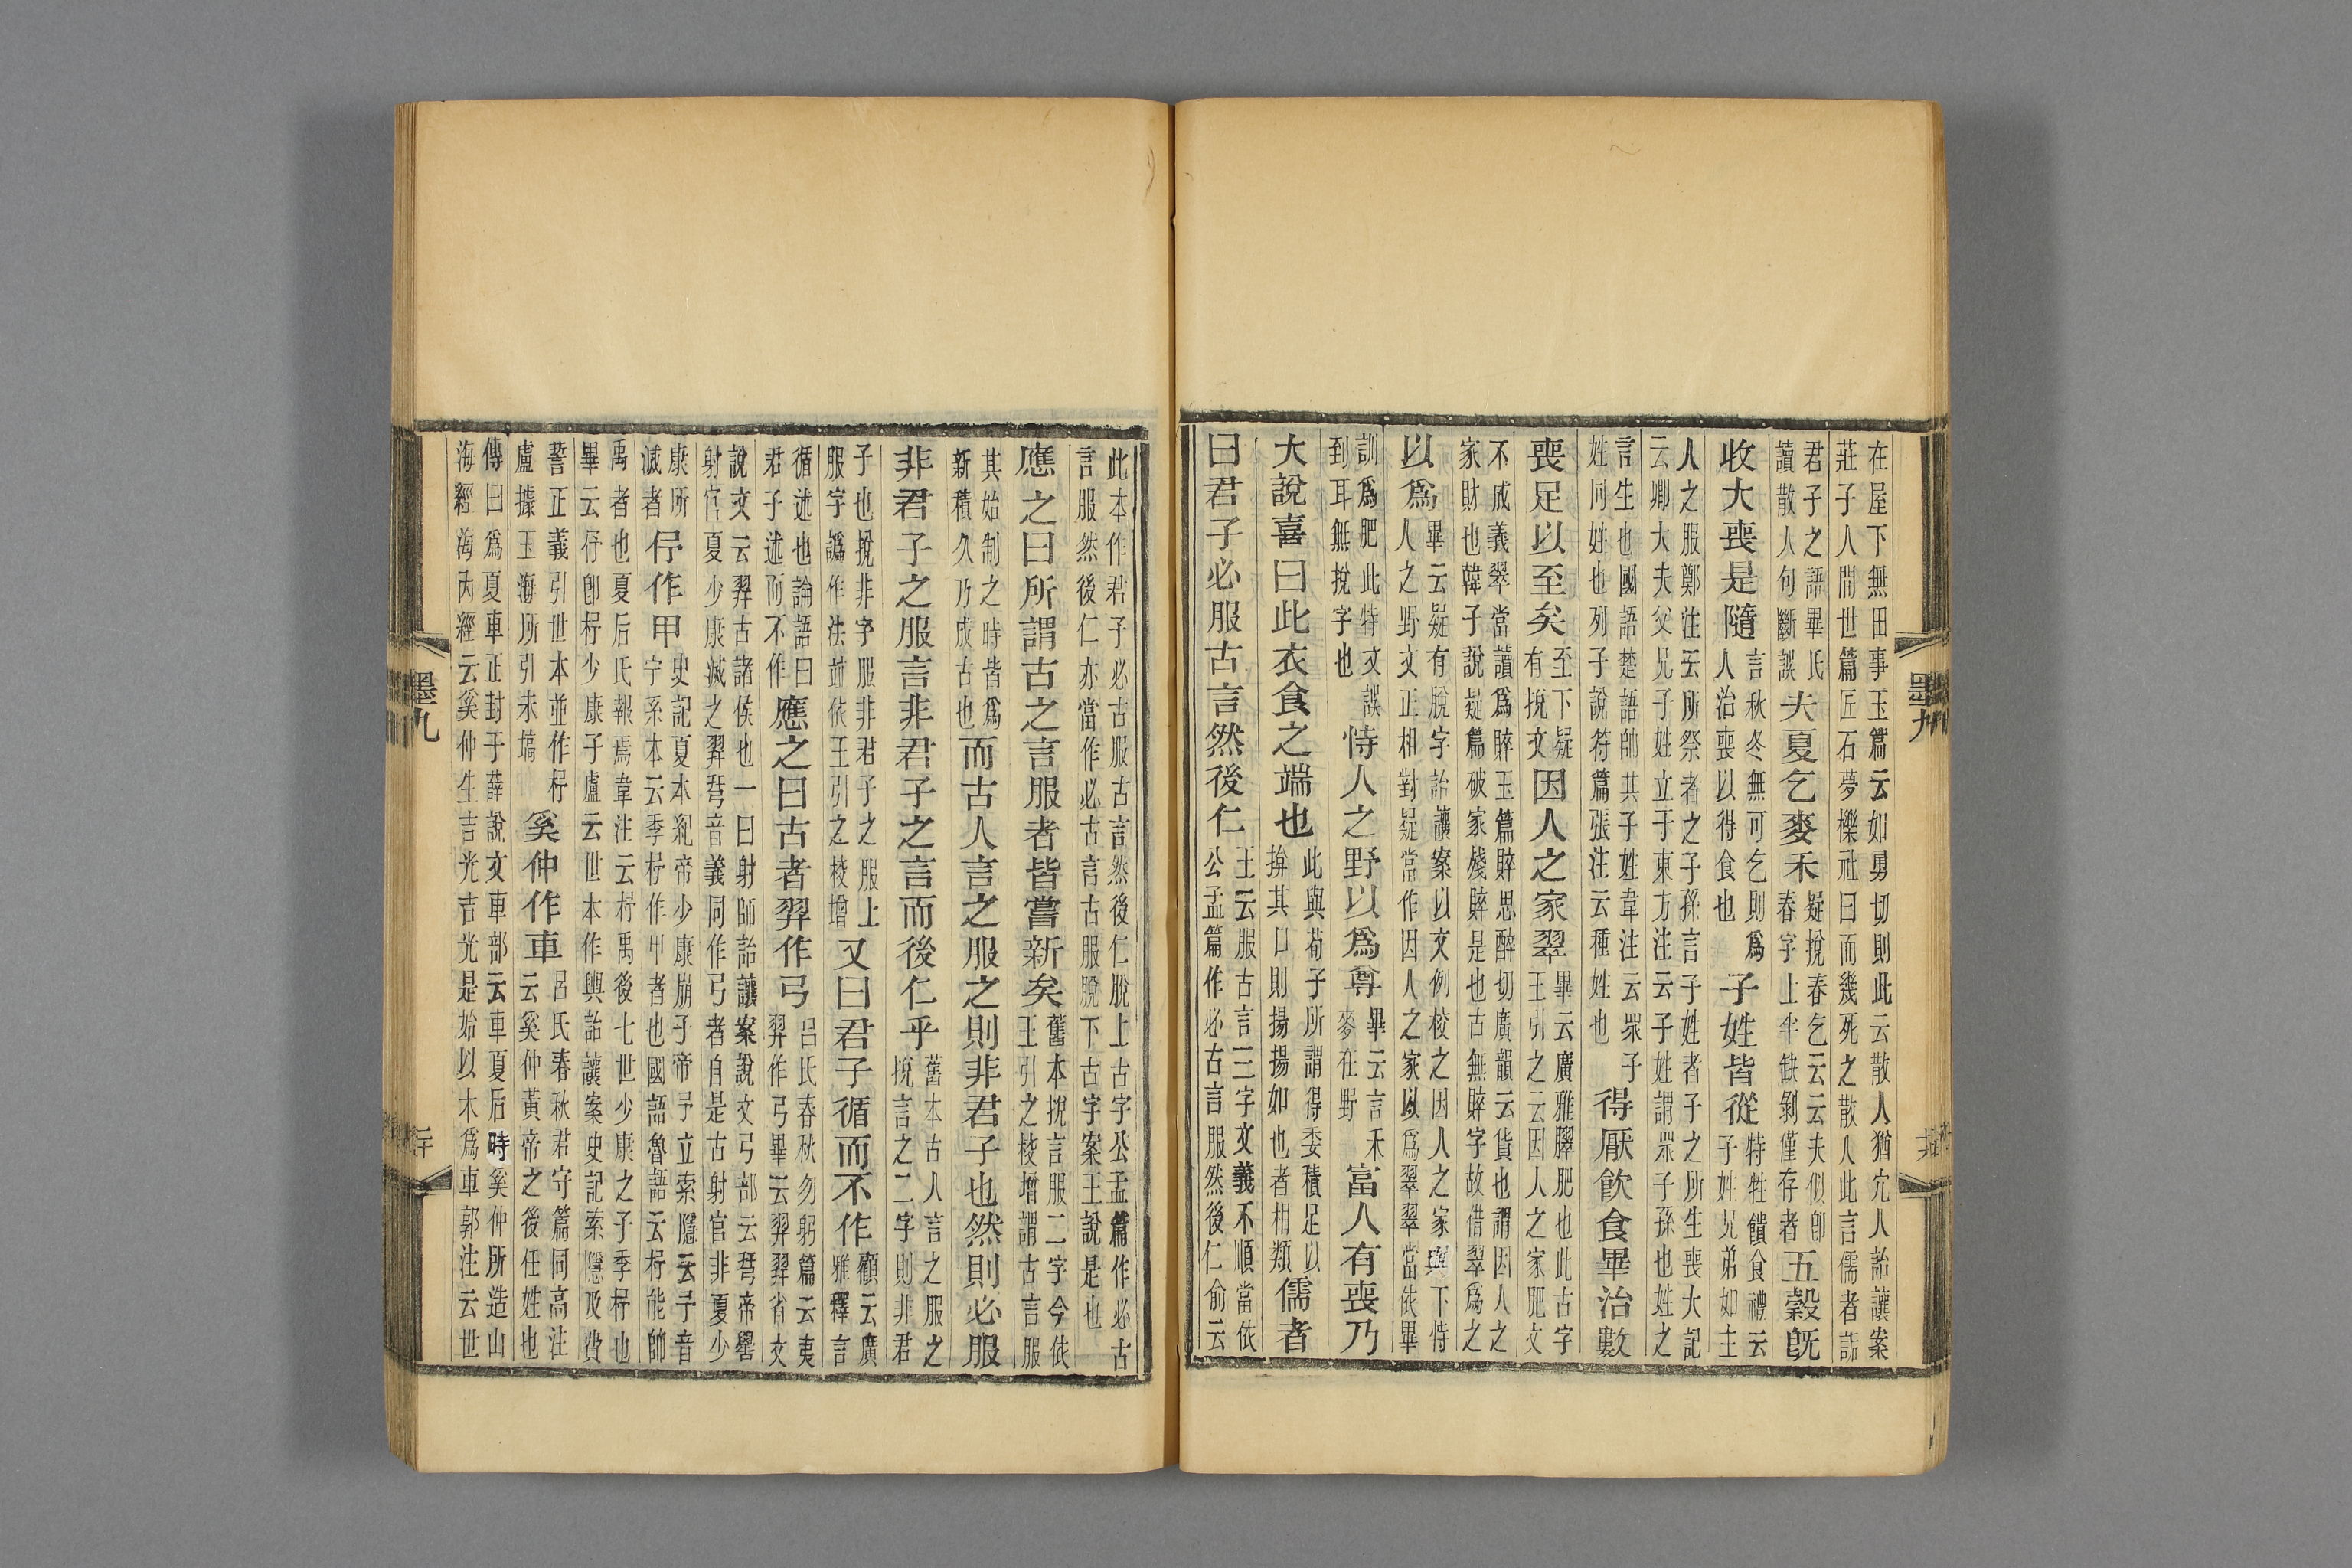 在屋下無田事玉篇云如勇切則此云散人猶宂人詒讓案
莊子人閒世篇匠石夢櫟社曰而幾死之散人此言儒者詬
君子之語畢氏
讀散人句斷誤
夫夏乞麥禾
疑挩春乞云云夫似卽
春字上半缺剝僅存者
五穀既
收大喪是隨
言秋冬無可乞則爲
人治喪以得食也
子姓皆從
特牲饋食禮云
子姓兄弟如主
人之服鄭注云所祭者之子孫言子姓者子之所生喪大記
云卿大夫父兄子姓立于東方注云子姓謂眾子孫也姓之
言生也國語楚語帥其子姓韋注云眾子
姓同姓也列子說符篇張注云種姓也
得厭飲食畢治數
喪足以至矣
至下疑
有挩文
因人之家翠
畢云廣雅臎肥也此古字
王引之云因人之家肥文
不成義翠當讀爲賥玉篇賥思醉切廣韻云貨也謂因人之
家財也韓子說疑篇破家殘賥是也古無賥字故借翠爲之
以爲
畢云疑有脫字詒讓案以文例校之因人之家與下恃
人之野文正相對疑當作因人之家以爲翠翠當依畢
訓爲肥此特文誤
到耳無挩字也
恃人之野以爲尊
畢云言禾
麥在野
富人有喪乃
大說喜曰此衣食之端也
此與荀子所謂得委積足以
揜其口則揚揚如也者相類
儒者
曰君子必服古言然後仁
王云服古言三字文義不順當依
公孟篇作必古言服然後仁俞云
墨九
此本作君子必古服古言然後仁脫上古字公孟篇作必古
言服然後仁亦當作必古言古服脫下古字案王說是也
應之曰所謂古之言服者皆嘗新矣
舊本挩言服二字今依
王引之校增謂古言服
其始制之時皆爲
新積久乃成古也
而古人言之服之則非君子也然則必服
非君子之服言非君子之言而後仁乎
舊本古人言之服之
挩言之二字則非君
子也挩非字服非君子之服上
服字譌作法並依王引之校增
又曰君子循而不作
顧云廣
雅釋言
循述也論語曰
君子述而不作
應之曰古者羿作弓
呂氏春秋勿躬篇云夷
羿作弓畢云羿羿省文
說文云羿古諸侯也一曰射師詒讓案說文弓部云䓖帝嚳
射官夏少康滅之羿䓖音義同作弓者自是古射官非夏少
康所
滅者
伃作甲
史記夏本紀帝少康崩子帝予立索隱云予音
宁系本云季杼作甲者也國語魯語云杼能帥
禹者也夏后氏報焉韋注云杼禹後七世少康之子季杼也
畢云伃卽杼少康子盧云世本作輿詒讓案史記索隱及費
誓正義引世本並作杼
盧據玉海所引未塙
奚仲作車
呂氏春秋君守篇同高注
云奚仲黃帝之後任姓也
傳曰爲夏車正封于薛說文車部云車夏后時奚仲所造山
海經海內經云奚仲生吉光吉光是始以木爲車郭注云世
墨九
二十